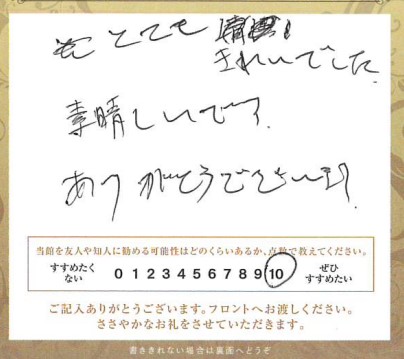 とても
きれいでした
素晴しいです。
ありがとうございます。
当館を友人や知人に勧める可能性はどのくらいあるか、点数で教えてください。
すすめたくない 0 1 2 3 4 5 6 7 8 9 10 ぜひすすめたい
ご記入ありがとうございます。フロントへお渡しください。
ささやかなお礼をさせていただきます。
書ききれない場合は裏面へどうぞ